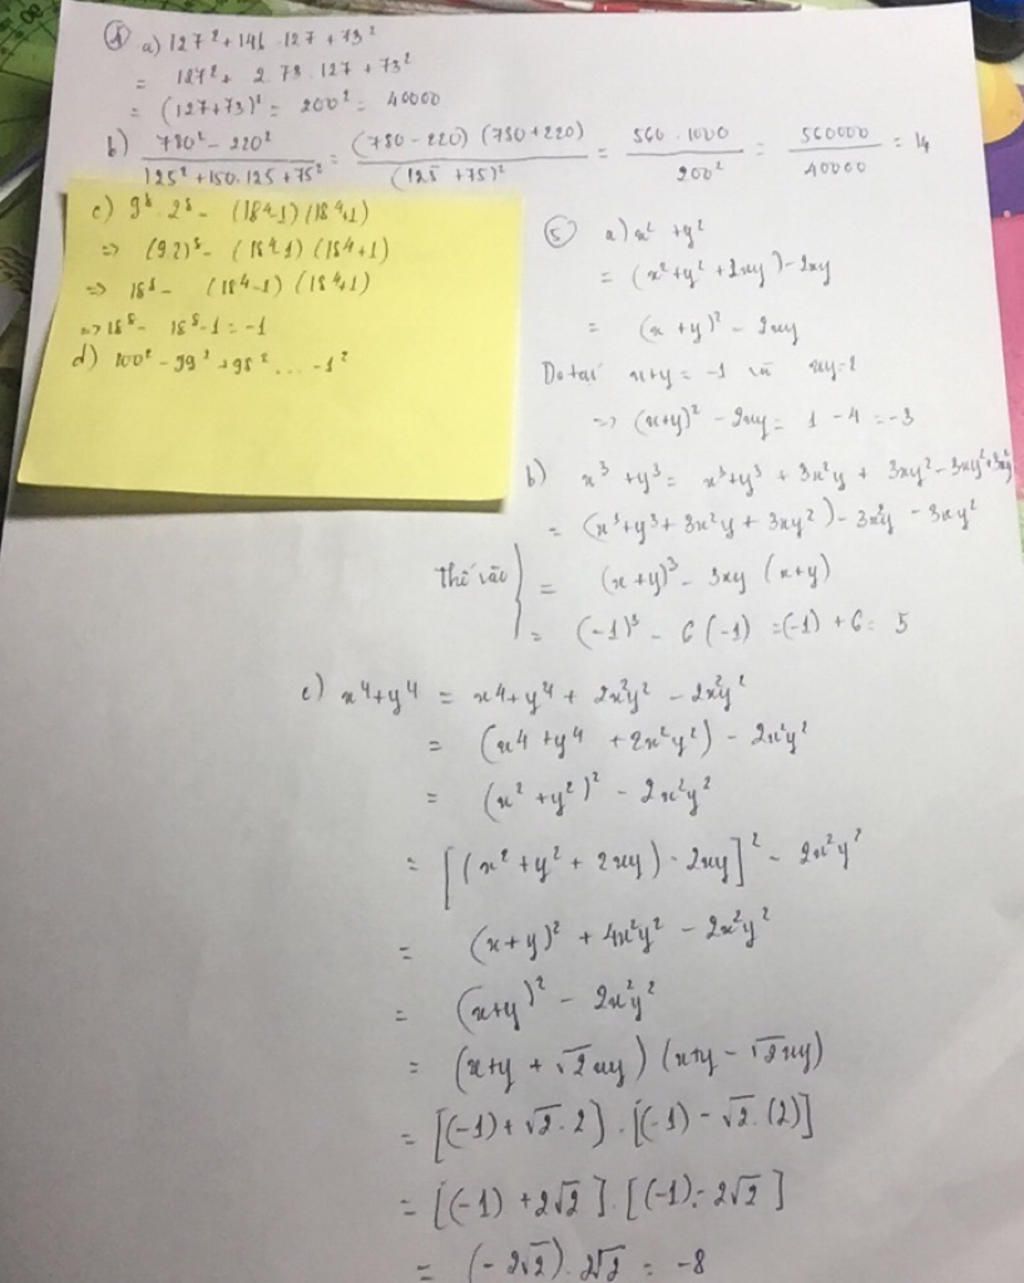 ④ a) 127² + 146 . 127 + 73²
= 127² + 2 . 73 . 127 + 73²
= (127+73)² = 200² = 40000
b) \frac{780² - 220²}{125² + 150.125 + 75²} = \frac{(780 - 220) (780 + 220)}{(125 + 75)²} = \frac{560 . 1000}{200²} = \frac{560000}{40000} = 14
c) 9⁸ . 2⁸ - (18⁴-1) (18⁴+1)
=> (9.2)⁸ - (18⁴-1) (18⁴+1)
=> 18⁸ - (18⁴-1) (18⁴+1)
=> 18⁸ - 18⁸-1 = -1
d) 100² - 99² + 98² ... -1²
⑤ a) x² + y²
= (x² + y² + 2xy) - 2xy
= (x + y)² - 2xy
Do tại x+y = -1 và xy=2
=> (x+y)² - 2xy = 1 - 4 = -3
b) x³ + y³ = x³+y³ + 3x²y + 3xy² - 3xy² + 3x²y
= (x³+y³ + 3x²y + 3xy²) - 3x²y - 3xy²
Thế vào } = (x+y)³ - 3xy (x+y)
= (-1)³ - 6 (-1) = (-1) + 6 = 5
c) x⁴+y⁴ = x⁴+y⁴ + 2x²y² - 2x²y²
= (x⁴ + y⁴ + 2x²y²) - 2x²y²
= (x² + y²)² - 2x²y²
= [(x² + y² + 2xy) - 2xy]² - 2x²y²
= (x+y)² + 4x²y² - 2x²y²
= (x+y)² - 2x²y²
= (x+y + √2xy) (x+y - √2xy)
= [(-1) + √2 . 2] . [(-1) - √2 . (2)]
= [(-1) + 2√2] . [(-1) - 2√2]
= (- 2√2) . 2√2 = -8